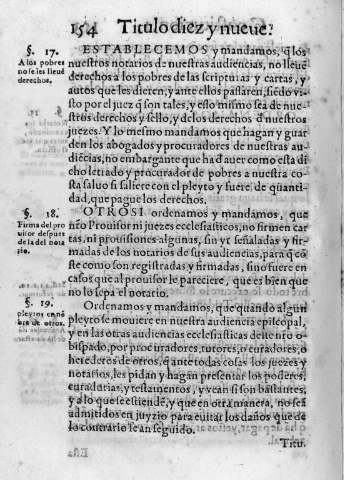 154 Titulo diez y nueve?
§. 17.
A los pobres
no se les lleuē
derechos.
ESTABLECEMOS y mandamos, q̄ los
nuestros notarios de nuestras audiencias, no lleuē
derechos a los pobres de las scripturas y cartas, y
autos que les dieren, y ante ellos passaren, siēdo vi-
sto por el juez q̄ son tales, y esso mismo sea de nue-
stros derechos y sello, y de los derechos d̄ nuestros
juezes. Y lo mesmo mandamos que hagan y guar
den los abogados y procuradores de nuestras au-
diēcias, no embargante que ha d̄ auer como esta di
cho letrado y procurador de pobres a nuestra co-
sta saluo si saliere con el pleyto y fuere de quanti-
dad, que pague los derechos.
§. 18.
Firma del pro
uisor despues
de la del nota
rio.
OTROSI ordenamos y mandamos, que
nr̄o Prouisor ni juezes ecclesiasticos, no firmen car
tas, ni prouisiones algunas, sin yr señaladas y fir-
madas de los notarios de sus audiencias, para q̄ co
ste como son registradas y firmadas, sino fuere en
casos que al prouisor le pareciere, que es bien que
no lo sepa el notario.
§. 19.
pleytos en nō
bre de otros.
Ordenamos y mandamos, que quando algun
pleyto se mouiere en nuestra audiencia episcopal,
y en las otras audiencias ecclesiasticas deste nr̄o o-
bispado, por procuradores, tutores, o curadores, o
herederos de otros, q̄ ante todas cosas los juezes y
notarios, les pidan y hagan presentar los poderes,
curadurias, y testamentos, y vean si son bastantes,
y a lo que se estiendē, y que en otra manera, no seā
admitidos en juyzio para euitar los daños que de
lo contrario se an seguido.
Titu.